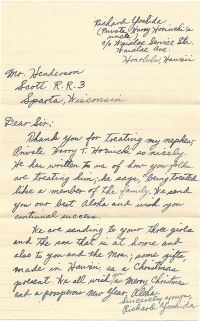 Richard Yoshida
(Private Harry Horiuchi's
uncle)
c/o Waialae Service Sta.
Waialae Ave.
Honolulu, Hawaii
Mr. Henderson
Scott R.R. 3
Sparta, Wisconsin
Dear Sir;
Thank you for treating my nephew,
Private Harry T. Horiuchi so nicely.
He has written to us of how you folks
are treating him; he says, "being treated
like a member of the family. We send
you our best Aloha and wish you
continual success.
We are sending to your three girls
and the son that is at home and
also to you and the Mrs.; some gifts,
made in Hawaii, as a Christmas
present. We all wish you a Merry Christmas
and a prosperous New Year, Aloha,
Sincerely yours,
Richard Yoshida